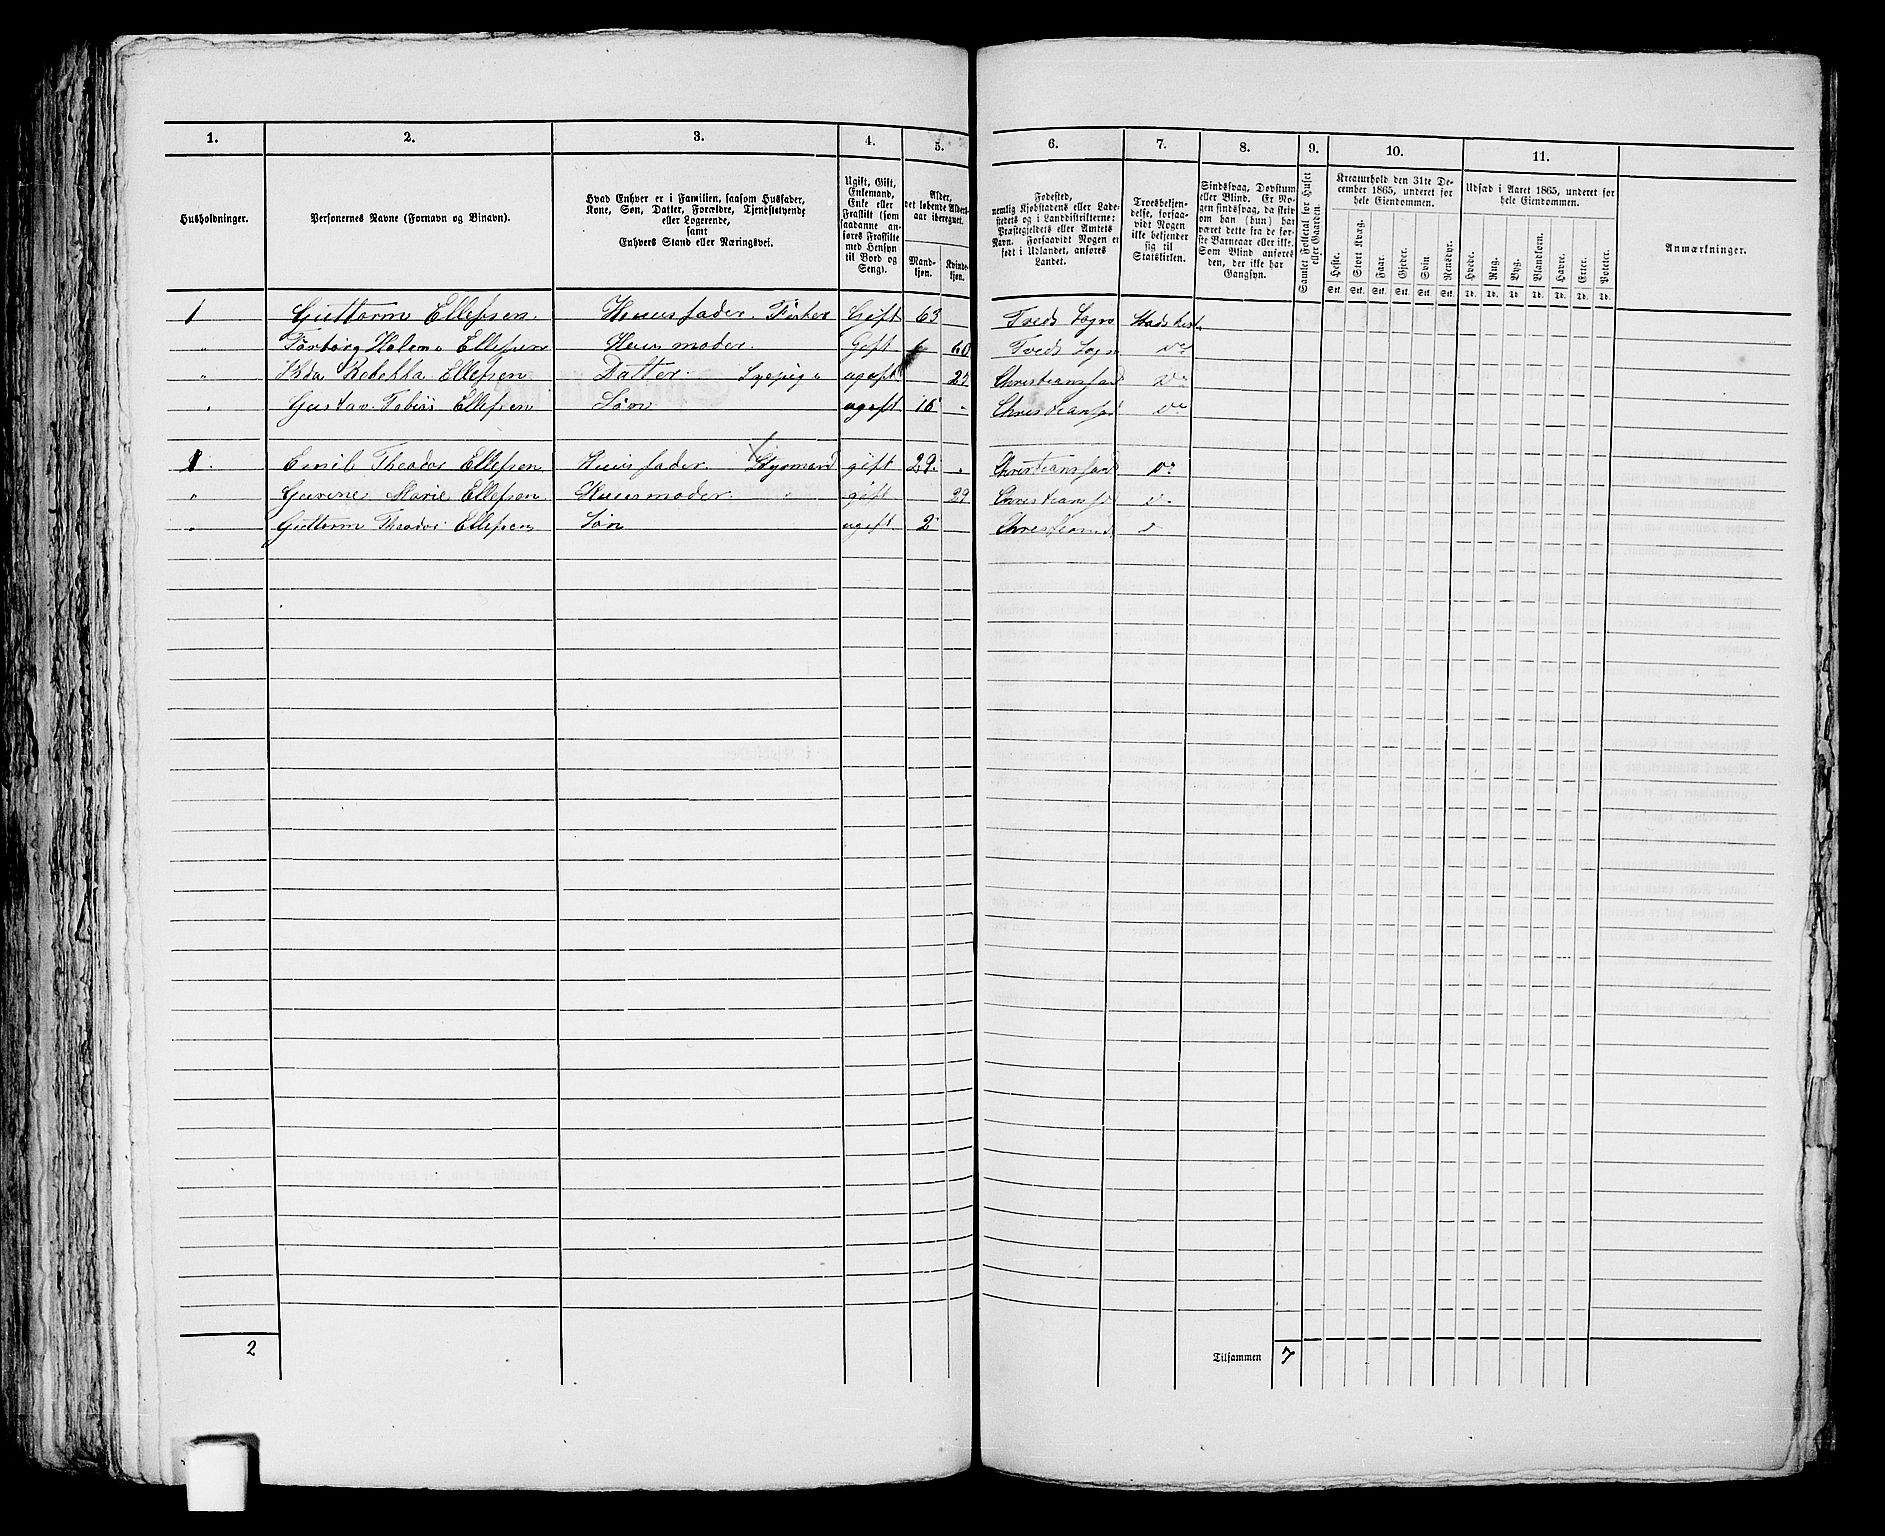 1. 2. 3. 4. 5. 6. 7. 8. 9. 10. 11.
Husholdninger.
Personernes Navne (Fornavn og Binavn).
Hvad Enhver er i Familien, saasom Husfader,
Kone, Søn, Datter, Forældre, Tjenestetyende
eller Logerende,
samt
Enhvers Stand eller Næringsvei.
Ugift, Gift,
Enkemand,
Enke eller
Fraskilt (som
saadanne an-
føres Fraskilte
med Hensyn
til Bord og
Seng).
Alder,
det løbende Alders-
aar iberegnet.
Mand-
kjøn.
Kvinde-
kjøn.
Fødested,
nemlig Kjøbstadens eller Lade-
stedets og i Landdistrikterne:
Præstegjeldets eller Amtets
Navn. Forsaavidt Nogen er
født i Udlandet, anføres
Landet.
Troesbekjen-
delse, forsaa-
vidt Nogen
ikke bekjender
sig til
Statskirken.
Sindssvag, Døvstum
eller Blind. Er No-
gen sindssvag, da skri-
ves om han (hun) har
været dette fra de før-
ste Barneaar eller ikke.
Som Blind anføres
den, der ikke har
Gangsyn.
Samlet Folketal for Huset
eller Gaarden.
Kreaturhold den 31te De-
cember 1865, underet for
hele Eiendommen.
Heste. Stort Kvæg. Faar. Gjeder. Svin Rensdyr.
Stk. Stk. Stk. Stk. Stk. Stk.
Udsæd i Aaret 1865, underet for
hele Eiendommen.
Hvede. Rug. Byg. Blandkorn. Havre. Erter. Poteter.
Td. Td. Td. Td. Td. Td. Td.
Anmærkninger.
1 Guttorm Ellefsen. Huusfader. Fisker Gift 63 Tveds Sogn Stadskirk
" Torborg Helene Ellefsen Huusmoder. Gift 60 Tveds Sogn Do
" Ida Rebekka Ellefsen Datter. Syepige ugift Christiansand Do
" Gustav Tobias Ellefsen Søn ugift 16 " Christiansand Do
1. Emil Theodor Ellefsen Huusfader. Styrmand gift 29 " Christiansand Do
" Gurine Marie Ellefsen Huusmoder. " gift 29 Christiansand
" Guttorm Theodor Ellefsen Søn ugift. 2
2
Tilsammen 7